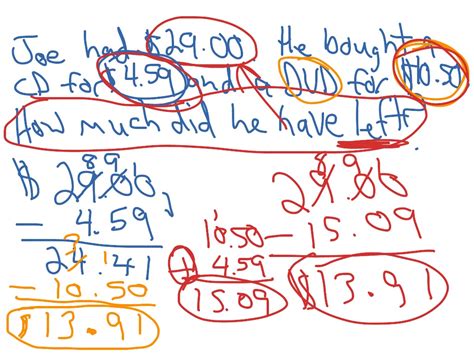 Joe had $29.00 He bought a
CD for $4.59 and a DVD for $10.50
How much did he have left.
8 9 9.
$ 29.00 29.00
- 4.59 10.50 - 15.09
24.41 + 4.59 $13.91
- 10.50 15.09
$13.91